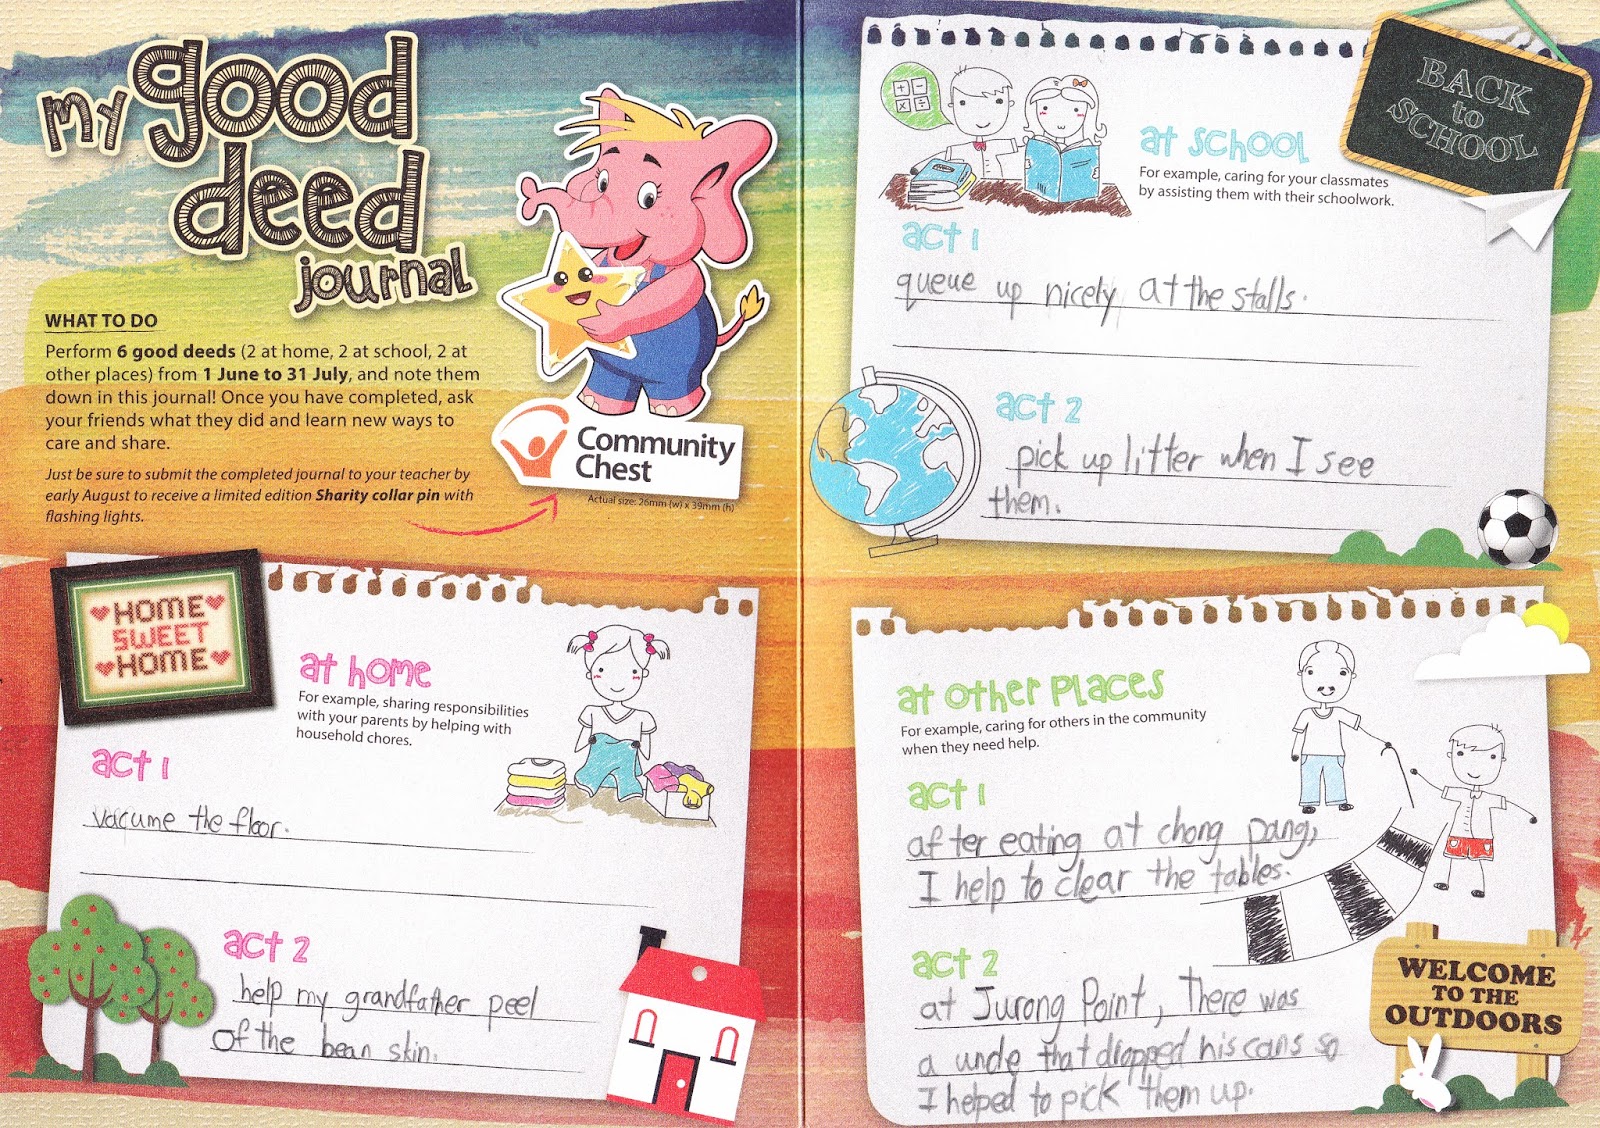 my good
deed
journal
WHAT TO DO
Perform 6 good deeds (2 at home, 2 at school, 2 at
other places) from 1 June to 31 July, and note them
down in this journal! Once you have completed, ask
your friends what they did and learn new ways to
care and share.
Just be sure to submit the completed journal to your teacher by
early August to receive a limited edition Sharity collar pin with
flashing lights.
Community
Chest
Actual size: 26mm (w) x 39mm (h)
HOME
SWEET
HOME
at home
For example, sharing responsibilities
with your parents by helping with
household chores.
act 1
vacume the floor.
act 2
help my grandfather peel
of the bean skin.
BACK
to
SCHOOL
at school
For example, caring for your classmates
by assisting them with their schoolwork.
act 1
queue up nicely at the stalls.
act 2
pick up litter when I see
them.
at other places
For example, caring for others in the community
when they need help.
act 1
after eating at chong pang,
I help to clear the tables.
act 2
at Jurong Point, there was
a uncle that dropped his cans so
I helped to pick them up.
WELCOME
TO THE
OUTDOORS